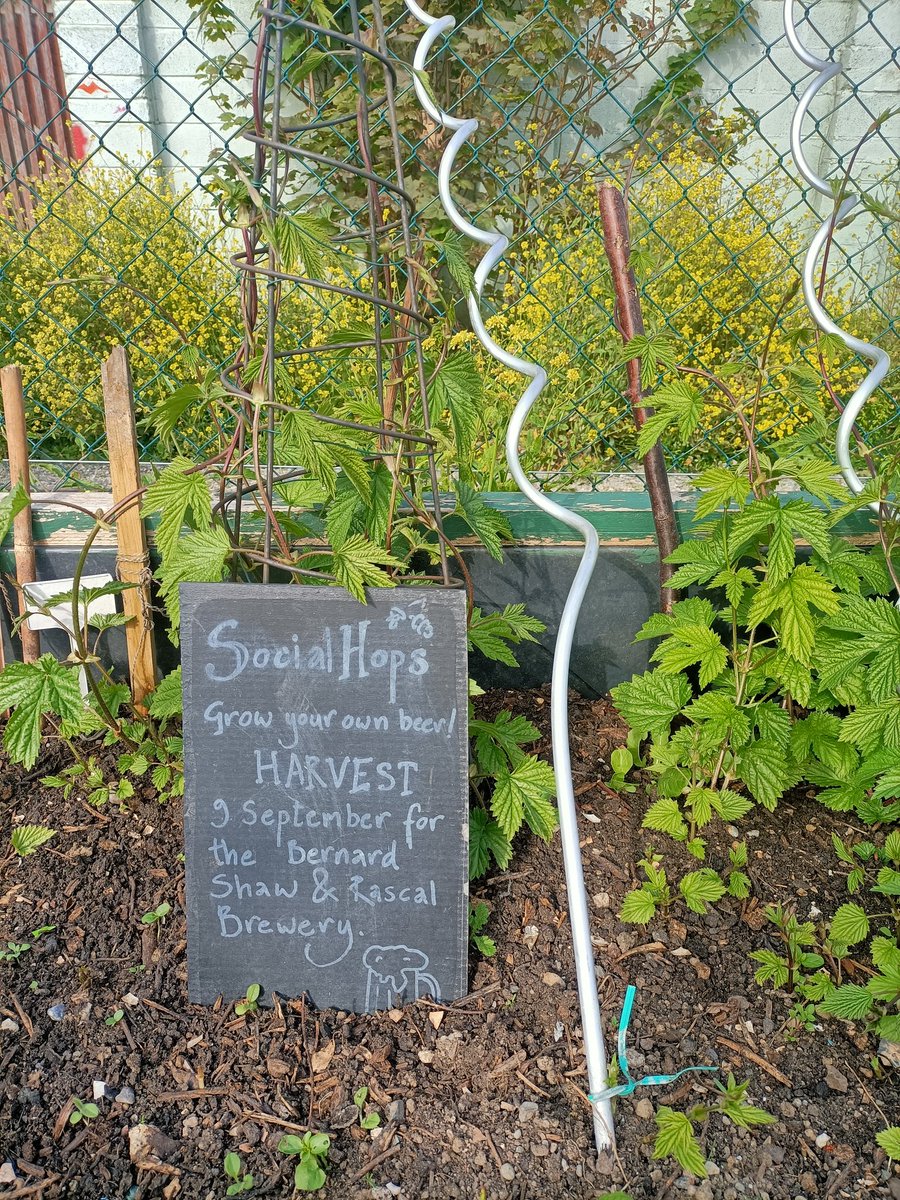 Social Hops
Grow your own beer!
HARVEST
9 September for
the Bernard
Shaw & Rascal
Brewery.